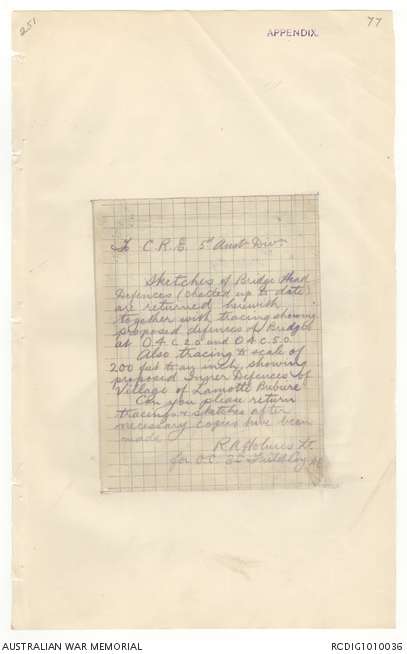 251
77
APPENDIX.
To C.R.E. 5th Aust Divn
Sketches of Bridge Head
Defences (checked up to date)
are returned herewith
together with tracing showing
proposed defences of Bridges
at O.4.C.2.0 and O.4.C.5.0.
Also tracing to scale of
200 feet to an inch, showing
proposed Inner Defences of
Village of Lamotte Brebiere
Can you please return
tracings & sketches after
necessary copies have been
made
R A Holmes Lt
for O.C. Field Coy AE
AUSTRALIAN WAR MEMORIAL
RCDIG1010036